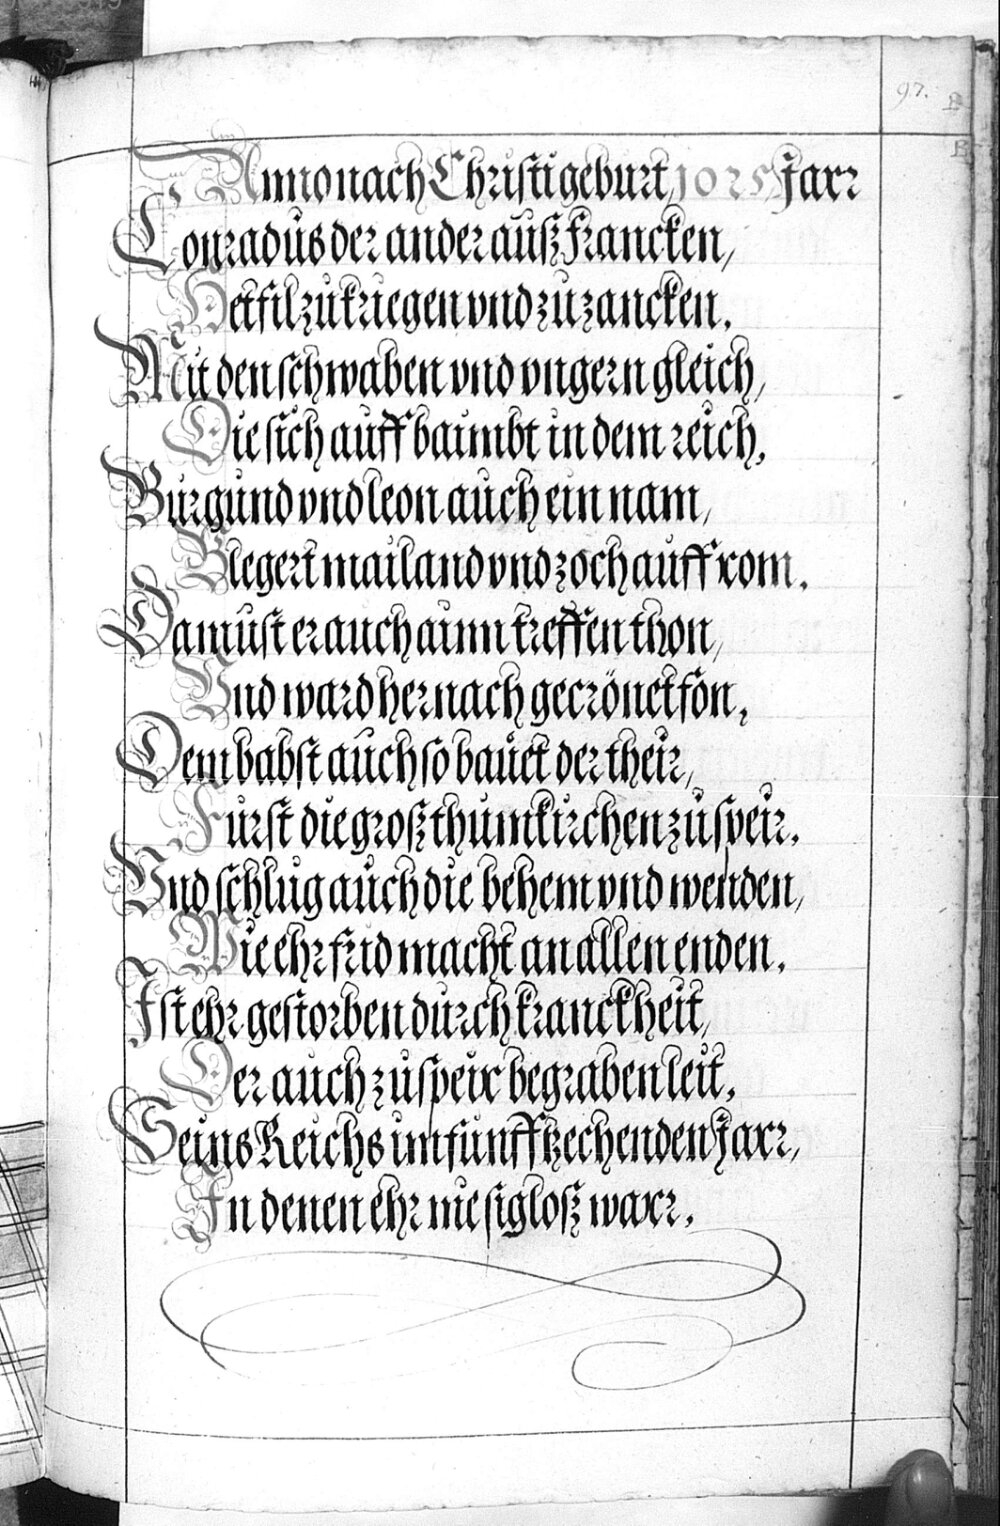 97.
Anno nach Christi geburt, 1025, Jarr
Conradus der ander auß francken,
Het fil zu kriegen vnd zu zancken.
Mit den schwaben vnd vngern gleich,
Die sich auff baimbt in dem reich,
Burgund vnd leon auch ein nam,
Blegert mailand vnd zoch auff rom.
Da must er auch ainn treffen thon,
Vnd ward hernach gecrönet fon,
Dem babst auch so bauet der their,
Furst die groß thumkirchen zu speir.
Vnd schlug auch die behem vnd wenden,
Wie ehr frid macht an allen enden.
Ist ehr gestorben durch kranckheit,
Der auch zu speir begraben leit,
Seins Reichs im funfftzechenden Jarr,
In denen ehr nie sigloß warr.